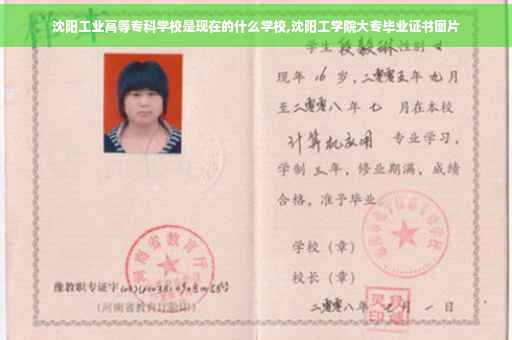 沈阳工业高等专科学校是现在的什么学校,沈阳工学院大专毕业证书图片
学生 段毅琳 性别 女
现年 16 岁,二零零五年 九月
至二零零八年 七 月在本校
计算机应用 专业学习,
学制 三 年,修业期满,成绩
合格,准予毕业
学校(章)
校长(章)
二零零八年 七 月 一 日
河南省教育厅
豫教职专证字
(河南省教育厅验印)